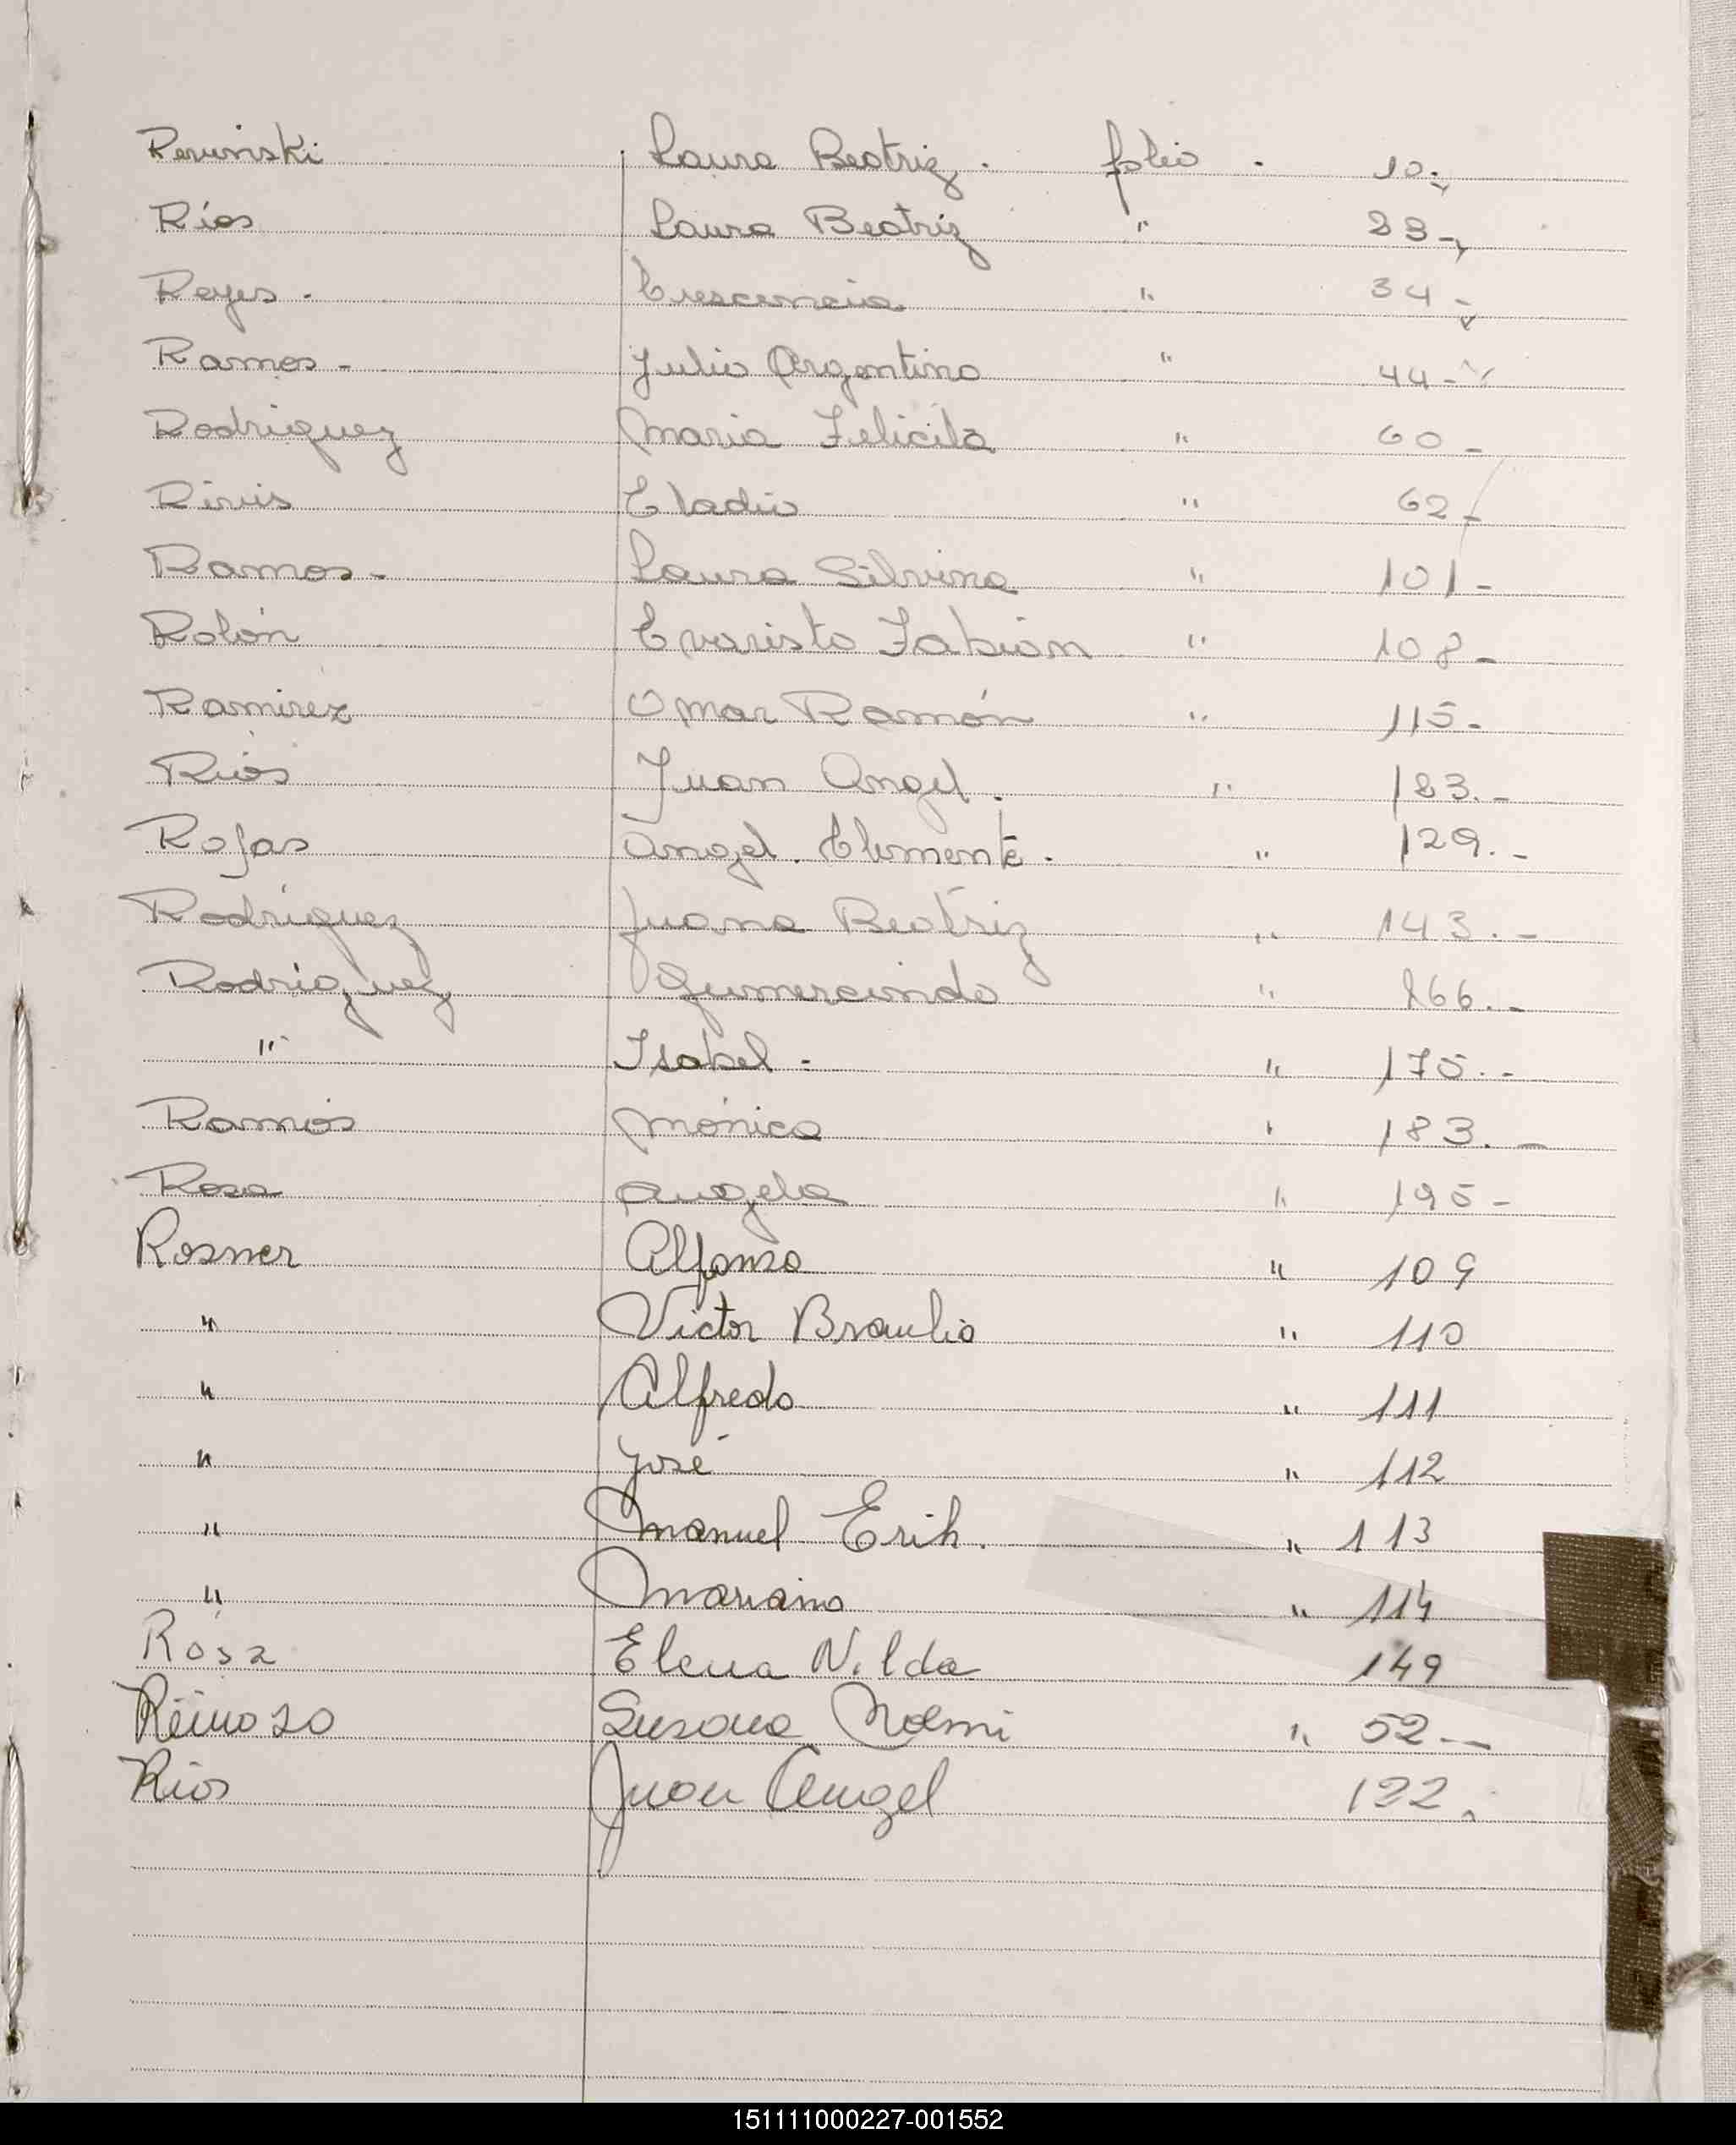 Laura Beatriz . folio . 10.-
Ríos Laura Beatriz " 23-
Reyes . Crescencia " 34-
Ramos - Julio Argentino " 44-
Rodriguez Maria Felicita " 60-
Eladio " 62-
Ramos - Laura Silvina " 101-
Rolón Evaristo Fabián " 108-
Ramirez Omar Ramón " 115-
Rios Juan Angel . "
Rojas Angel . Clemente . " 129.-
Rodriguez Juana Beatriz " 143.-
Rodríguez Gumercindo " 166.-
" Isabel - " 175.-
Ramos Mónica " 183.-
Rosa Angela " 195-
Rosner Alfonso " 109
" Victor Braulio " 110
" Alfredo " 111
" José " 112
" Manuel Erik . " 113
" Mariano " 114
Rosa Elena Nilda 149
Reinoso Susana Noemi " 52.-
Rios Juan Angel 122.
151111000227-001552